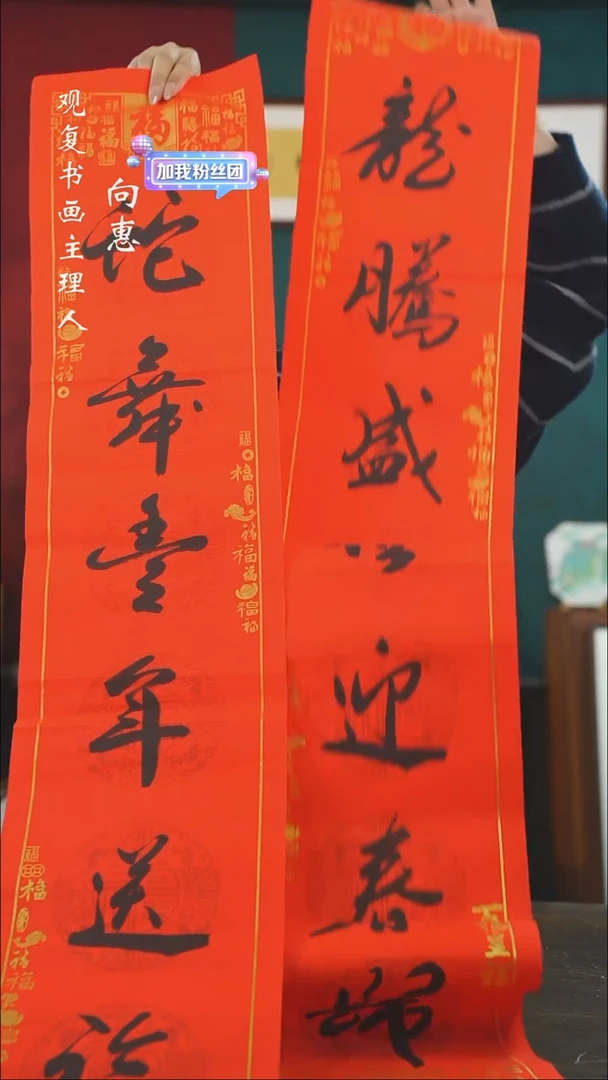 观复书画主理人
向惠
加我粉丝团
龍騰盛
迎春歸
蛇舞豐年送